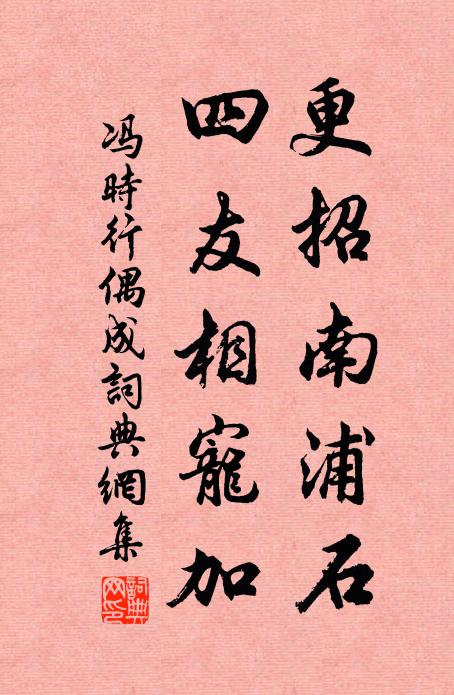 更招南浦石
四友相寵加
冯時行偶成詞典網集
詞典網印